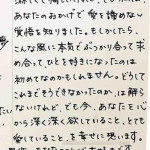 あなたのおかげで愛を諦めない
覚悟を知りました。もしかしたら、
こんな風に本気でぶつかり合って求
め合って、ひとを好きになったのは
初めてなのかもしれません。どうして
これまでそうできなかったのか、は解ら
ないけれど、でも今、あなたを心
から深く深く欲していること、とても
愛していること、を幸せに思います。